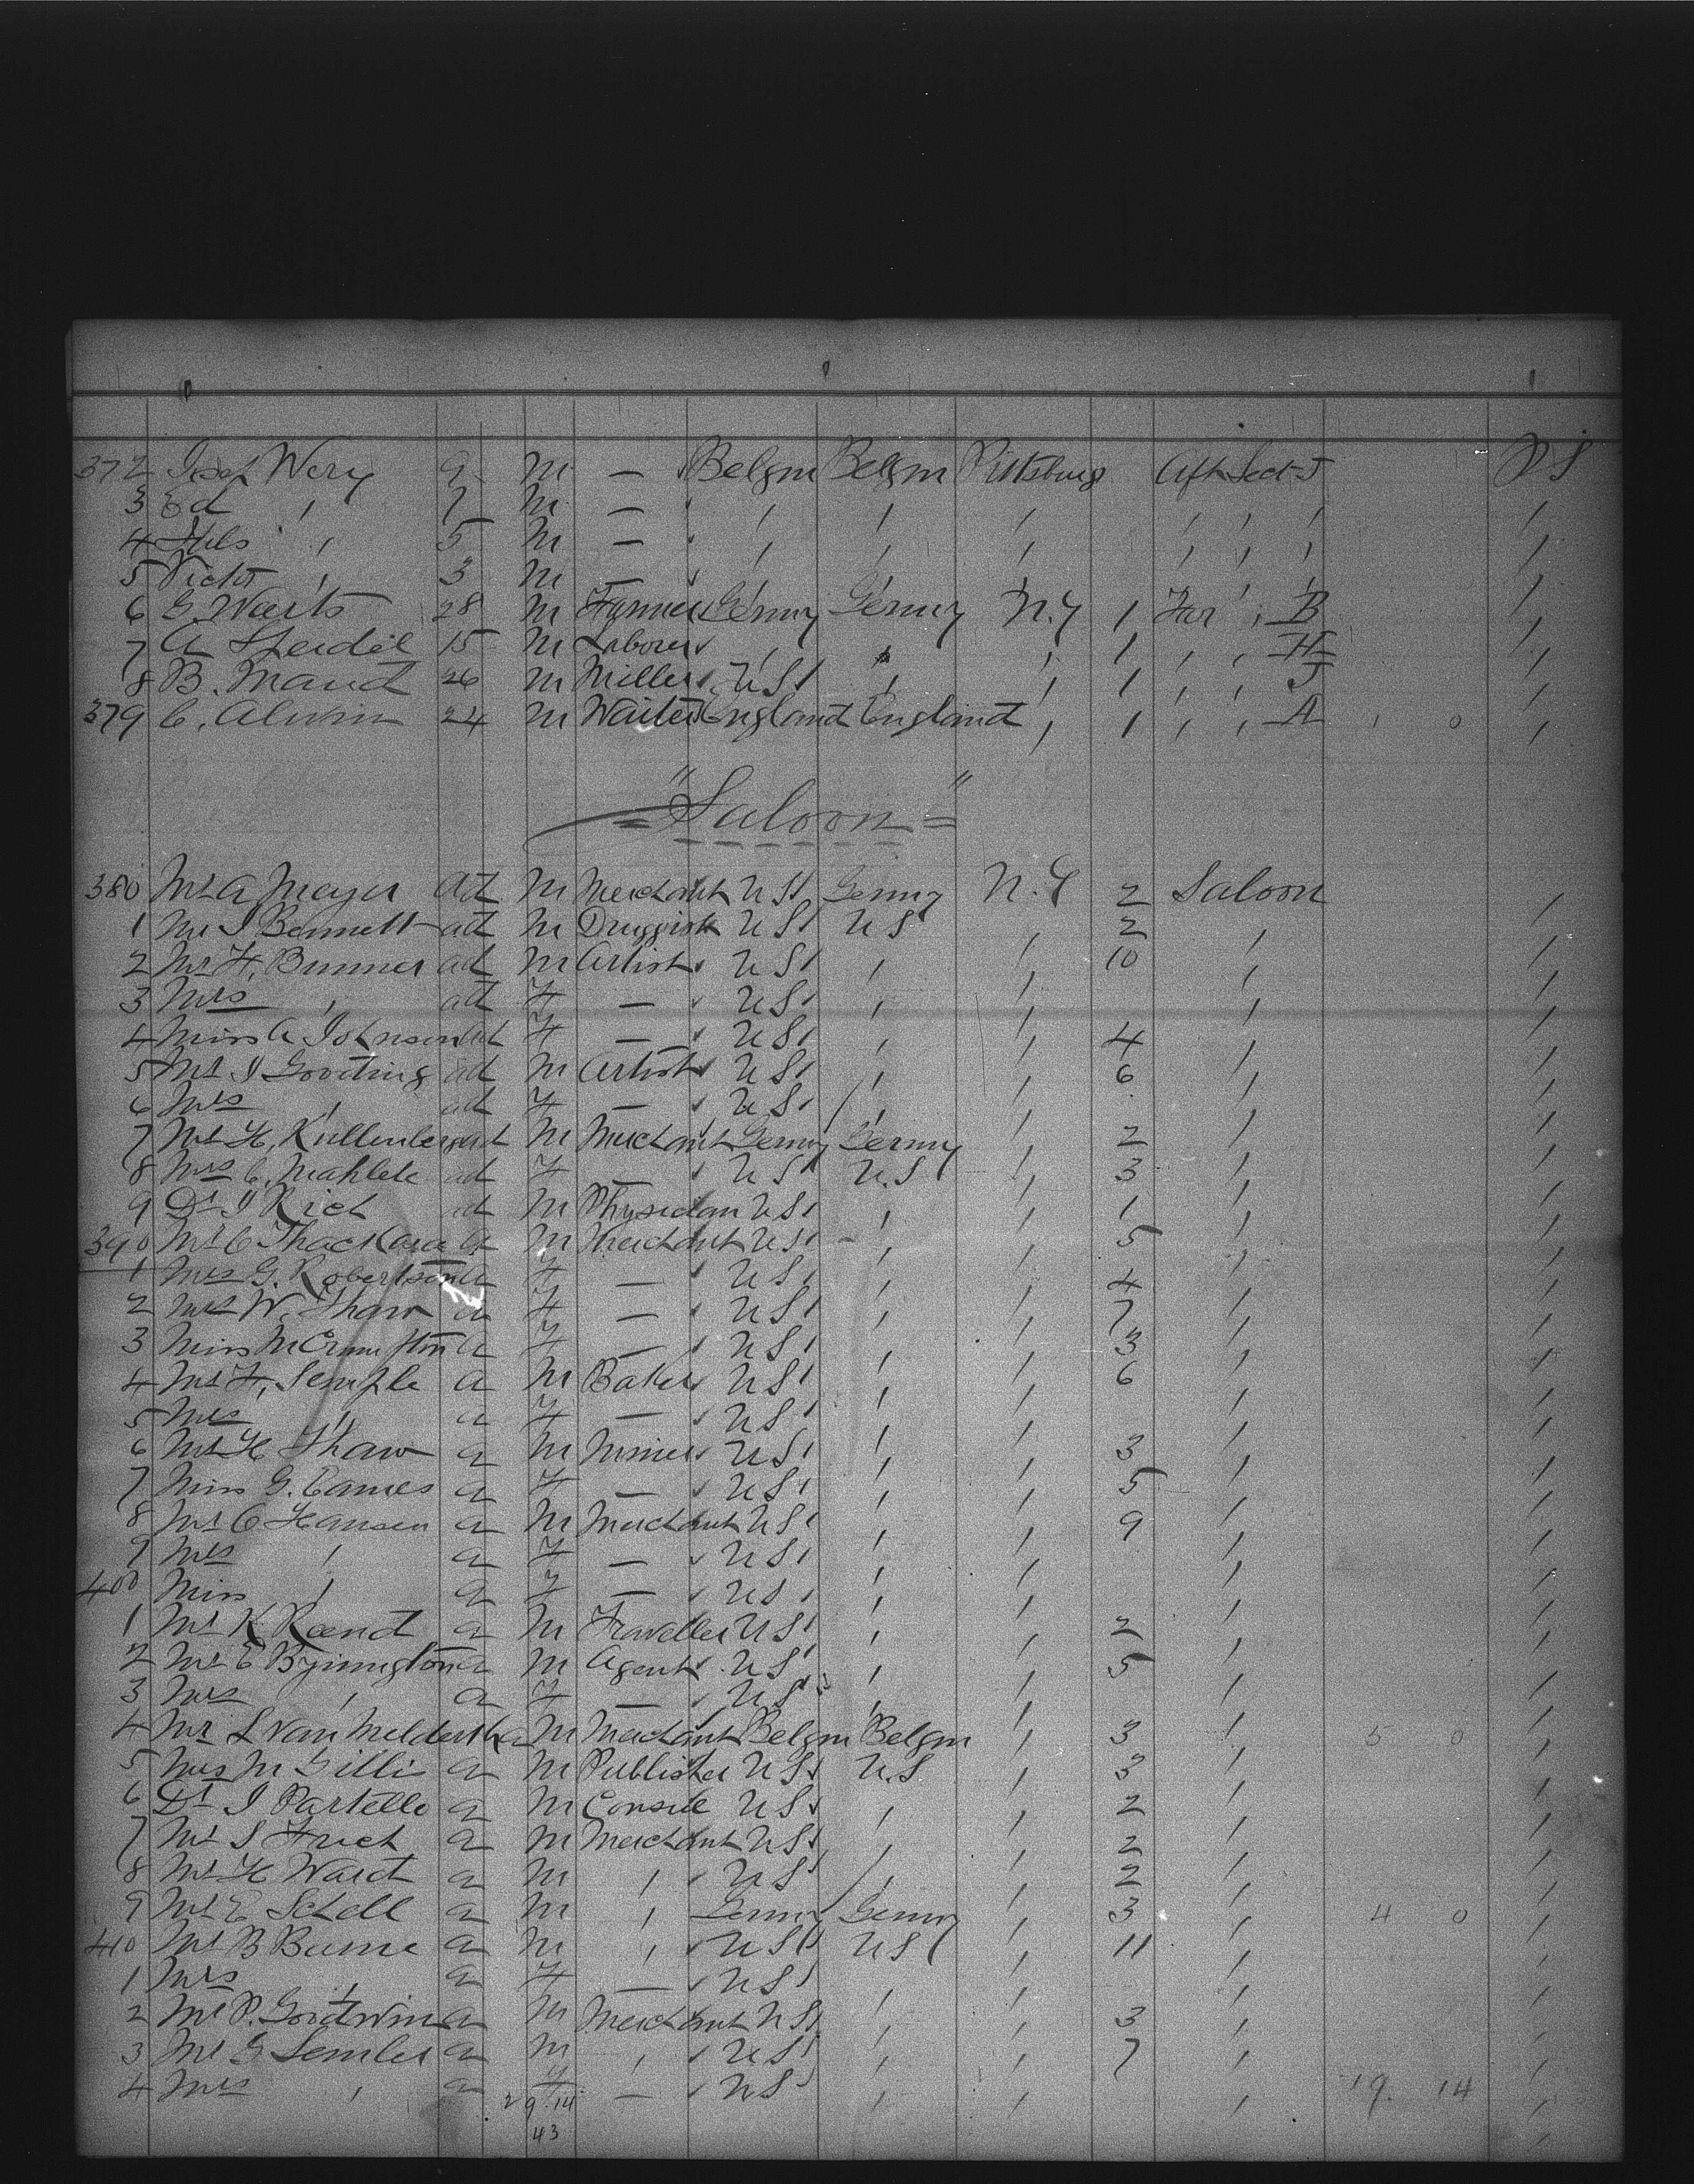 372 Wery 9 M — Belgm Belgm Pittsburg Aft Sect J P S
3 Ed " 7 M — " " " " " " "
4 " 5 M — " " " " " " "
5 Victor " 3 M — " " " " " " "
6 G. Waits 28 M Farmer Germy Germy N.Y 1 For " B "
7 A 15 M Laborer " " " 1 " " H "
8 B. Maud 26 M Miller U S " " 1 " " J "
379 C. Alwin 24 M Waiter England England " 1 " " A 1 0 "
"Saloon"
380 Mr A Meyer ad M Merchant U S Germy N.Y 2 Saloon "
1 Mr J Bennett ad M Druggist U S U S " 2 " "
2 Mr F. Brunner ad M Artist U S " " 10 " "
3 Mrs " ad F — U S " " " "
4 Miss A Johnson ad F — U S " " 4 " "
5 Mr J Gooding ad M Artist U S " " 6 " "
6 Mrs " ad F — U S " " " "
7 Mr H. Kullenberg ad M Merchant Germy Germy " 2 " "
8 Mrs C. Mahlele ad F — U S U.S " 3 " "
9 Dr J Rich ad M Physician U S " " 1 " "
390 Mr C Thackara a M Merchant U S " " 5 " "
1 Mrs G. Robertson a F — U S " " 4 " "
2 Mrs W. Thaw a F — U S " " 7 " "
3 Miss M Crumpton a F — U S " " 3 " "
4 Mr F. Semple a M Baker U S " " 6 " "
5 Mrs " a F — U S " " " "
6 Mr H Thaw a M U S " " 3 " "
7 Miss G. Eames a F — U S " " 5 " "
8 Mr C Hansen a M Merchant U S " " 9 " "
9 Mrs " a F — U S " " " "
400 Miss " a F — U S " " " "
1 Mr K Rand a M Traveller U S " " 2 " "
2 Mr E Byington a M Agent U S " " 5 " "
3 Mrs " a F — U S " " " "
4 Mr L Van a M Merchant Belgm Belgm " 3 " 5 0 "
5 Mrs M Gillis a M Publisher U S U.S " 3 " "
6 Dr J Partello a M Consul U S " " 2 " "
7 Mr S a M Merchant U S " " 2 " "
8 Mr H Ward a M " U S " " 2 " "
9 Mr E Schell a M " Germy Germy " 3 " 4 0 "
410 Mr B a M " U S U S " 11 " "
1 Mrs " a F — U S " " " "
2 Mr P. Goodwin a M Merchant U S " " 3 " "
3 Mr G Semler a M " U S " " 7 " "
4 Mrs " a F — U S " " " 19. 14 "
29.14
43